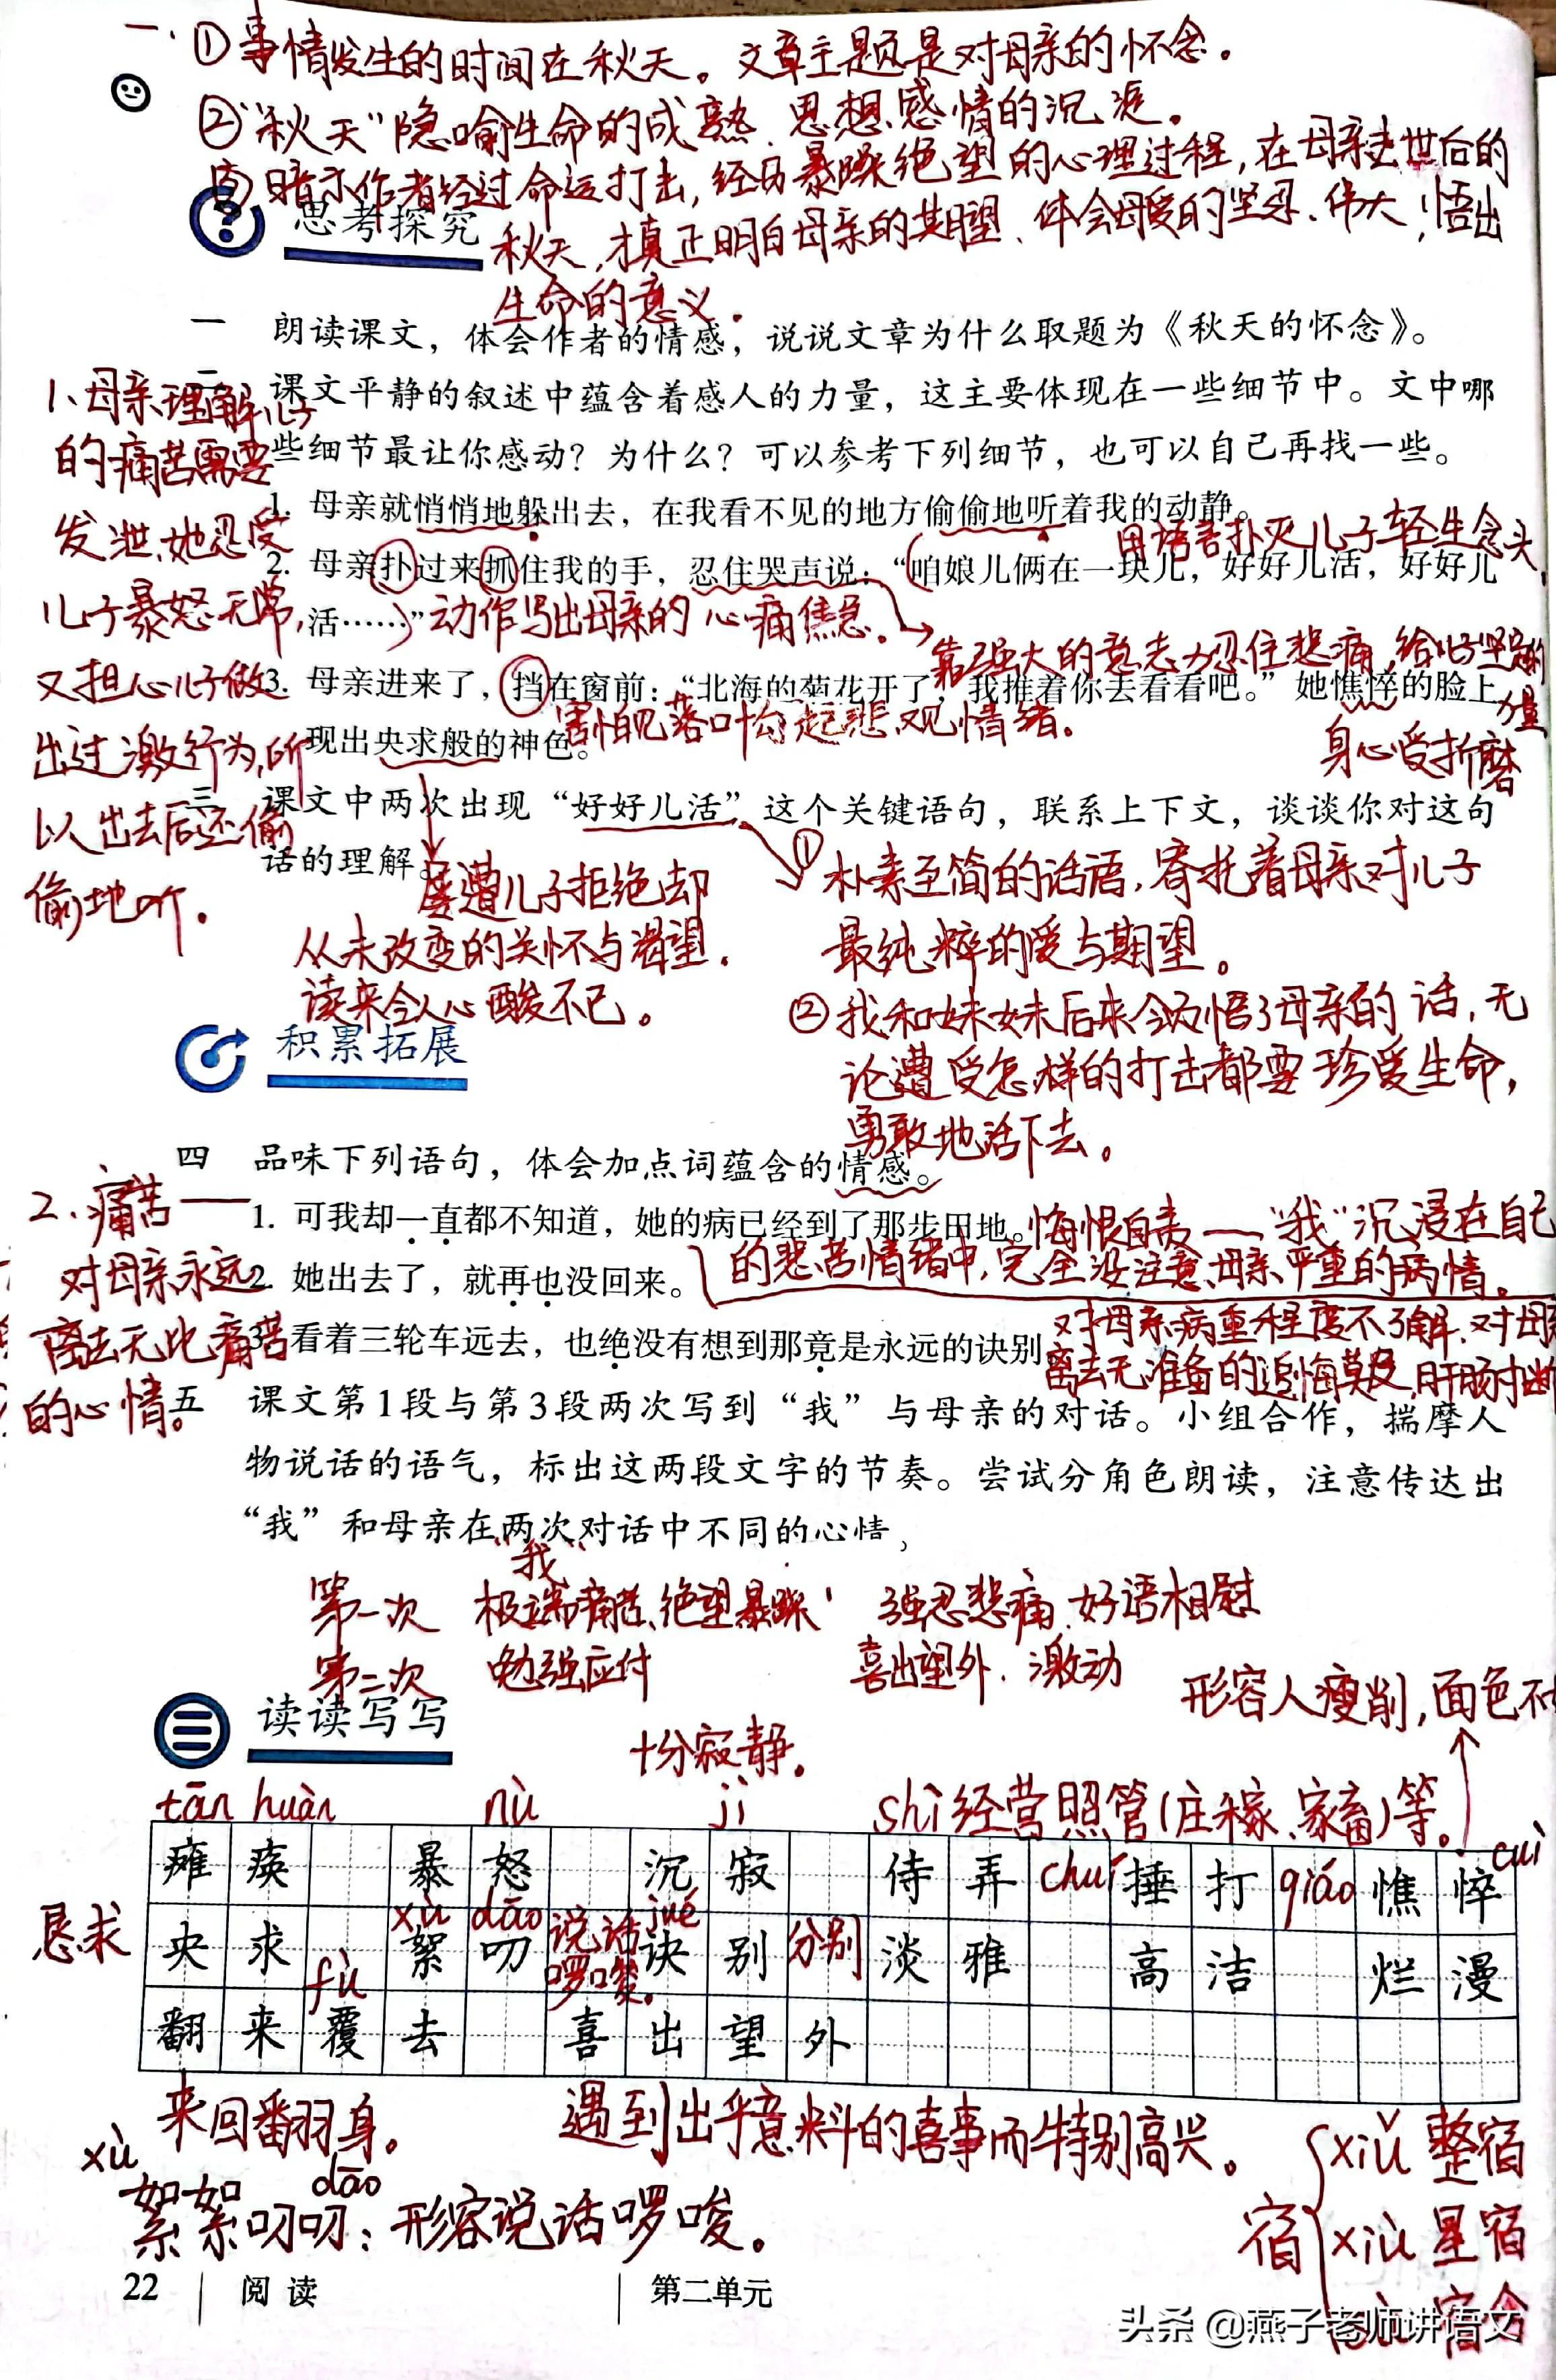 一.①事情发生的时间在秋天。文章主题是对母亲的怀念。
②“秋天”隐喻生命的成熟.思想感情的沉淀。
暗示作者经过命运打击,经历暴躁绝望的心理过程,在母亲去世后的
秋天,才真正明白母亲的期望、体会母爱的坚忍、伟大,悟出
生命的意义.
思考探究
一 朗读课文，体会作者的情感，说说文章为什么取题为《秋天的怀念》。
二 课文平静的叙述中蕴含着感人的力量，这主要体现在一些细节中。文中哪
些细节最让你感动？为什么？可以参考下列细节，也可以自己再找一些。
1. 母亲就悄悄地躲出去，在我看不见的地方偷偷地听着我的动静。
用语言扑灭儿子轻生念头,
2. 母亲扑过来抓住我的手，忍住哭声说：“咱娘儿俩在一块儿，好好儿活，好好儿
活……”
动作写出母亲的心痛焦急.
靠强大的意志力忍住悲痛,给儿子坚强的
力量
3. 母亲进来了，挡在窗前：“北海的菊花开了，我推着你去看看吧。”她憔悴的脸上
现出央求般的神色。
害怕落叶勾起悲观情绪。
身心受折磨
1、母亲理解儿子
的痛苦需要
发泄,她忍受
儿子暴怒无常,
又担心儿子做
出过激行为,所
以出去后还偷
偷地听.
三 课文中两次出现“好好儿活”这个关键语句，联系上下文，谈谈你对这句
话的理解。
屡遭儿子拒绝却
从未改变的关怀与渴望.
读来令人心酸不已。
①朴素至简的话语,寄托着母亲对儿子
最纯粹的爱与期望。
②我和妹妹后来会悟了母亲的话,无
论遭受怎样的打击都要珍爱生命,
勇敢地活下去。
积累拓展
四 品味下列语句，体会加点词蕴含的情感。
1. 可我却一直都不知道，她的病已经到了那步田地。
悔恨自责——“我”沉浸在自己
的悲苦情绪中,完全没注意母亲严重的病情。
2. 她出去了，就再也没回来。
3. 看着三轮车远去，也绝没有想到那竟是永远的诀别
对母亲病重程度不了解.对母亲
离去无准备的追悔莫及,肝肠寸断
2.痛苦——
对母亲永远
离去无比痛苦
的心情。
五 课文第1段与第3段两次写到“我”与母亲的对话。小组合作，揣摩人
物说话的语气，标出这两段文字的节奏。尝试分角色朗读，注意传达出
“我”和母亲在两次对话中不同的心情
“我”
第一次 极端痛苦、绝望暴躁 强忍悲痛.好语相慰
第二次 勉强应付 喜出望外.激动
形容人瘦削,面色不
读读写写
十分寂静。
tān huàn nù jì shì 经营照管(庄稼、家畜)等。
瘫痪 暴怒 沉寂 侍弄 chuí 捶打 qiáo 憔悴 cuì
恳求 央求 xù dāo 絮叨 说话啰唆。 jué 诀别 分别 淡雅 高洁 烂漫
翻来覆去 fù 喜出望外
来回翻身。 遇到出乎意料的喜事而特别高兴。
xù dāo
絮絮叨叨：形容说话啰唆。
宿 xiǔ 整宿
xiù 星宿
宿舍
22 阅读 第二单元
头条 @燕子老师讲语文